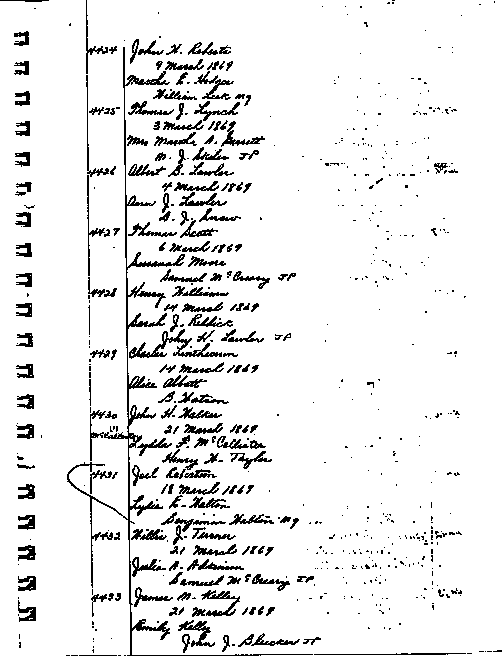 4424 John H. Roberts
9 March 1869
Martha E. Hodges
William Leek mg
4425 Thomas J. Lynch
3 March 1869
Mrs Martha A. Barrett
M. J. JP
4426 Albert B. Lawler
4 March 1869
Ann J. Lawler
D. J. Snow
4427 Thomas Scott
6 March 1869
Susanah Moore
Samuel McCreary JP
4428 Henry Williams
14 March 1869
Sarah J. Reddick
John H. Lawler JP
4429 Charles Linthicum
14 March 1869
Alice Abbott
B. Watson
4430 John H. Walker
21 March 1869
Lydda F. McCollister
Henry H. Taylor
4431 Joel Robertson
18 March 1869
Lydia E. Walton
Benjamin Walton Mg
4432 Willis J. Turner
21 March 1869
Julia A. Adkinson
Samuel McCreary JP
4433 James M. Kelley
21 March 1869
Emily Kelley
John J. Bleecker JP